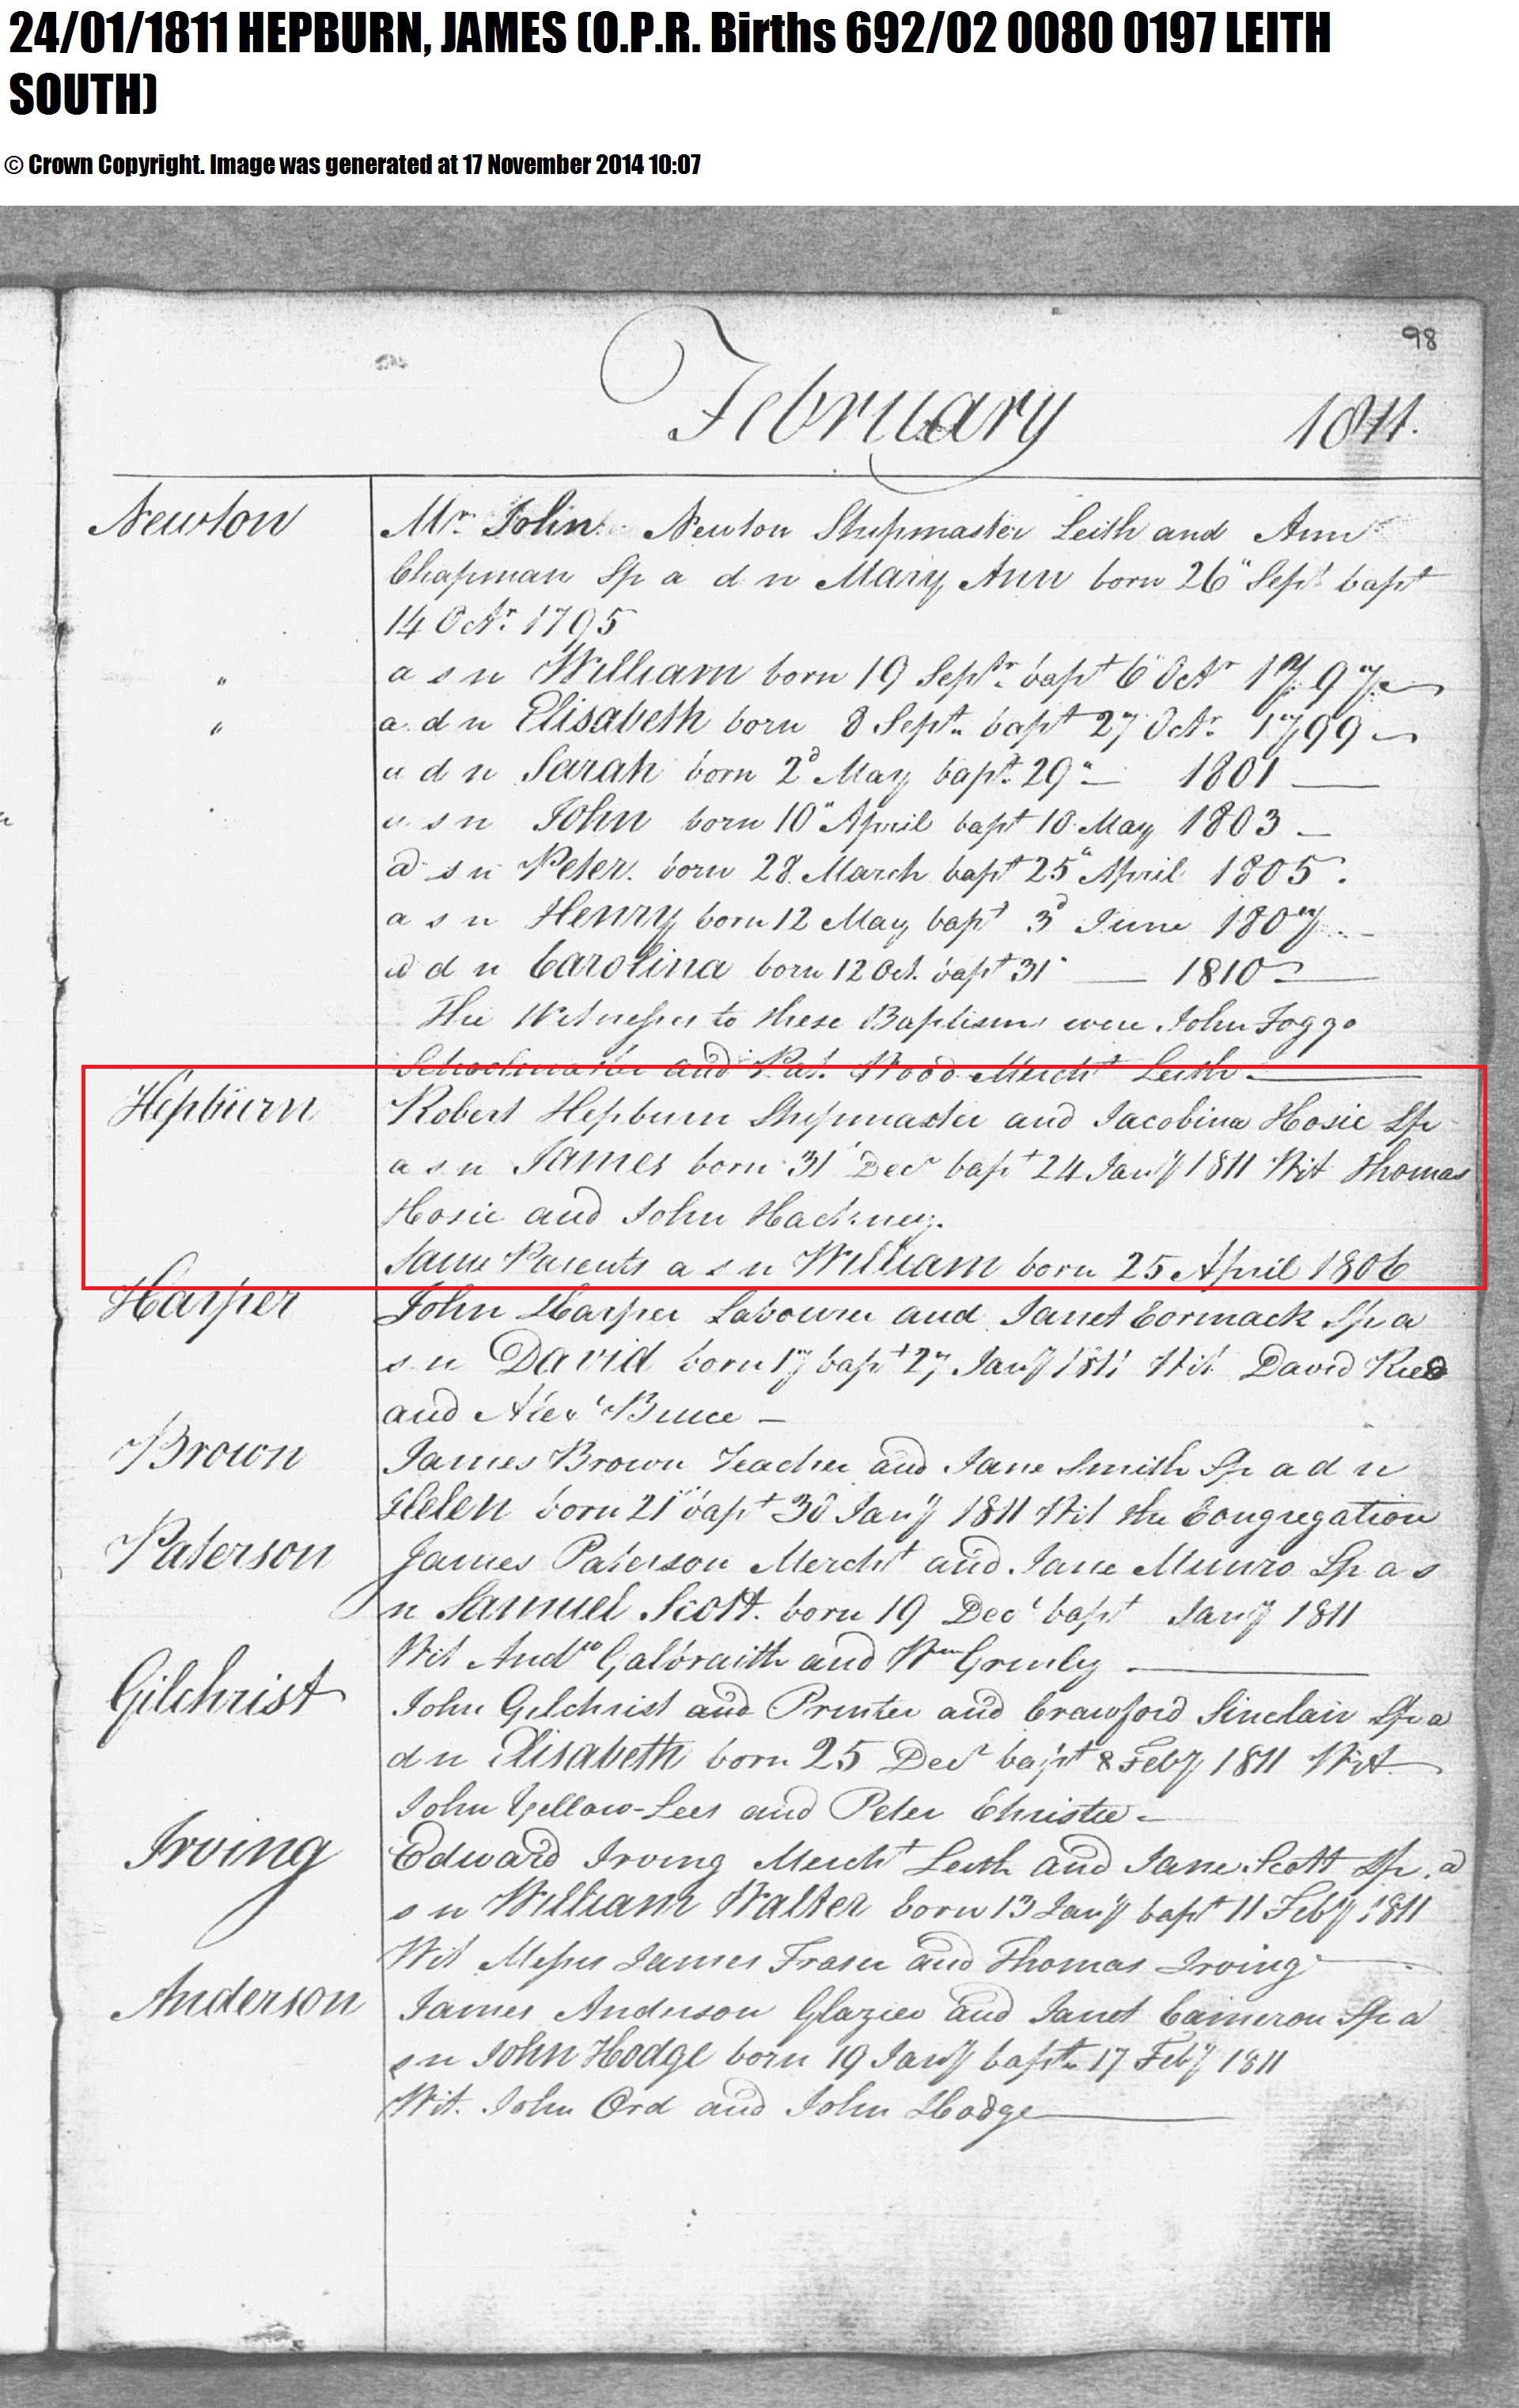 24/01/1811 HEPBURN, JAMES (O.P.R. Births 692/02 0080 0197 LEITH
SOUTH)
© Crown Copyright. Image was generated at 17 November 2014 10:07
98
February 1811.
Newton Mr. John Newton Shipmaster Leith and Ann
Chapman Sp a d n Mary Ann born 26" Sept bapt
14 Octr. 1795
" a s n William born 19 Septr. bapt 6" Octr 1797
" a d n Elisabeth born 8 Sept. bapt 27 Octr. 1799
a d n Sarah born 2d May bapt. 29" — 1801 —
a s n John born 10" April bapt 10 May 1803 —
a s n Peter. born 28 March bapt 25" April 1805.
a s n Henry born 12 May bapt 3d June 1807
a d n Carolina born 12 Oct. bapt 31 — 1810 —
The Witnesses to these Baptisms were John Foggo
Schoolmaster and Pat. Wood Mercht Leith —
Hepburn Robert Hepburn Shipmaster and Jacobina Hosie Sp
a s n James born 31 Decr bapt 24 Jany 1811 Wit Thomas
Hosie and John Hackney.
Same Parents a s n William born 25 April 1806
Harper John Harper Labourer and Janet Cormack Sp a
s n David born 17 bapt 27 Jany 1811 Wit David
and Alexr Bruce —
Brown James Brown Teacher and Jane Smith Sp a d n
Helen born 21" bapt 30 Jany 1811 Wit the Congregation
Paterson James Paterson Mercht and Jane Munro Sp a s
n Samuel Scott. born 19 Decr bapt Jany 1811
Wit Andw Galbraith and Wm —
Gilchrist John Gilchrist and Printer and Crawford Sinclair Sp a
d n Elisabeth born 25 Decr bapt 8 Feby 1811 Wit
John Yellow-Lees and Peter Christie —
Irving Edward Irving Mercht Leith and Jane Scott Sp. a
s n William Walter born 13 Jany bapt 11 Feby 1811
Wit Messrs James Fraser and Thomas Irving
Anderson James Anderson Glazier and Janet Cameron Sp a
s n John Hodge born 19 Jany bapt. 17 Feby 1811
Wit. John Ord and John Hodge —